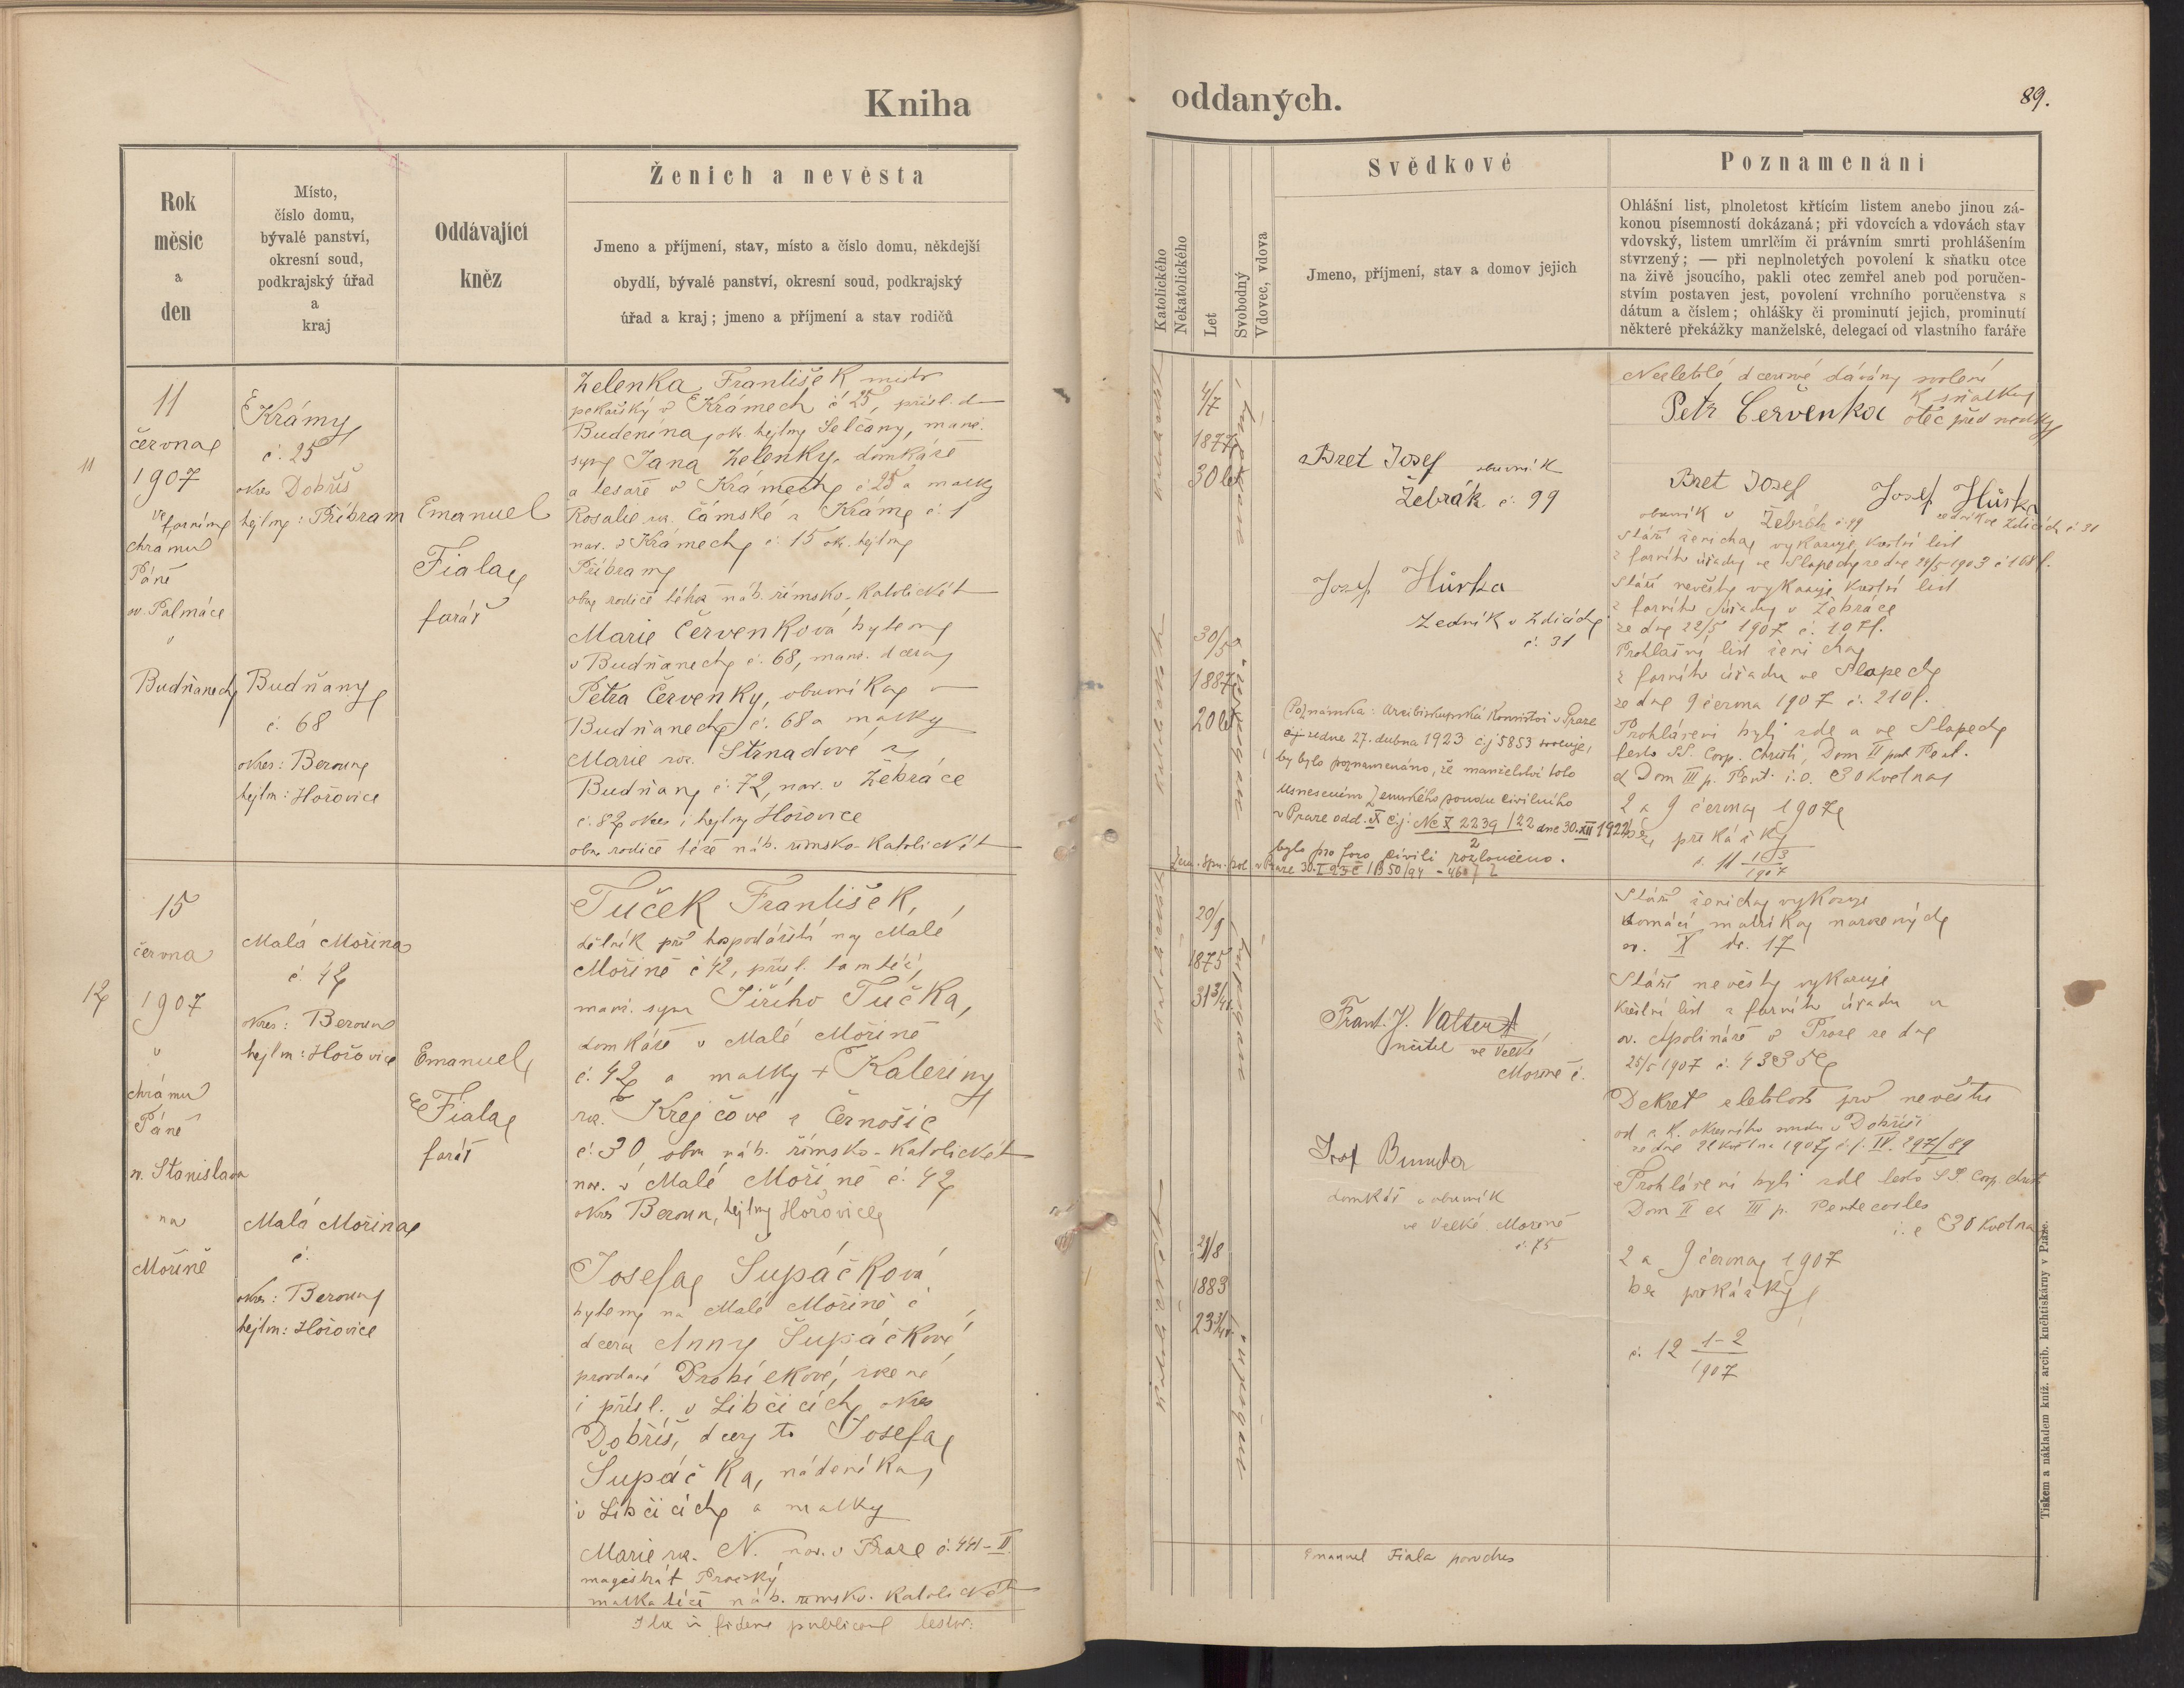 Kniha
oddaných.
89.
Rok
měsíc
a
den
Místo,
číslo domu,
bývalé panství,
okresní soud,
podkrajský úřad
a
kraj
Oddávající
kněz
Ženich a nevěsta
Jmeno a příjmení, stav, místo a číslo domu, někdejší
obydlí, bývalé panství, okresní soud, podkrajský
úřad a kraj; jmeno a příjmení a stav rodičů
Katolického
Nekatolického
Let
Svobodný
Vdovec, vdova
Svědkové
Jmeno, příjmení, stav a domov jejich
Poznamenání
Ohlášní list, plnoletost křticím listem anebo jinou zá-
konou písemností dokázaná; při vdovcích a vdovách stav
vdovský, listem umrlčím či právním smrti prohlášením
stvrzený; — při neplnoletých povolení k sňatku otce
na živě jsoucího, pakli otec zemřel aneb pod poručen-
stvím postaven jest, povolení vrchního poručenstva s
dátum a číslem; ohlášky či prominutí jejich, prominutí
některé překážky manželské, delegací od vlastního faráře
11
11
června
1907
ve farním
chrámu
Páně
sv. Palmáce
v
Budňanech
Krámy
č. 25
okres Dobříš
hejtm: Příbram
Budňany
č. 68
okres: Beroun
hejtm: Hořovice
Emanuel
Fiala
farář
Zelenka František mistr
pekařský v Krámech č 25, přísl. do
Budenína, ok. hejtm Selčany, manž.
syn Jana Zelenky, domkáře
a tesaře v Krámech č 25 a matky
Rosalie roz. Čámské z Krám č. 1
nar. v Krámech č. 15 ok. hejtm
Příbram
oba rodiče téhož náb. římsko-katolického
Marie Červenková bytem
v Budňanech č. 68, manž. dcera
Petra Červenky, obuvníka v
Budňanech č. 68 a matky
Marie roz. Strnadové z
Budňan č. 72, nar. v Žebráce
č. 82 okres i hejtm Hořovice
oba rodiče též náb. římsko-katolického
4/7
1877
30 let
30/5
1887
20 let
Bret Josef obuvník
Žebrák č. 99
Josef Hůrka
Zedník v Zdicích
č. 31
Poznámka: Arcibiskupská konsistoř v Praze
ze dne 27. dubna 1923 čj 5853
by bylo poznamenáno, že manželství toto
usnesením Zemského soudu civilního
v Praze odd. X č.j. Nc X 2239/22 dne 30. XII 1922
2
bylo pro foro civili rozloučeno.
Nezletilé dceři dávám svolení
k sňatku
Petr Červenka otec před
Bret Josef
Josef Hůrka
obuvník v Žebrák č. 99
zedník ve Zdicích č 31
Stáří ženicha vykazuje křestní list
z farního úřadu ve Slapech ze dne 29/5 1903 č 168 f.
Stáří nevěsty vykazuje křestní list
z farního úřadu v Žebráce
ze dne 22/5 1907 č. 107 f.
Prohlašní list ženicha
z farního úřadu ve Slapech
ze dne 9 června 1907 č. 210 f.
Prohlášeni byli zde a ve Slapech
festo SS. Corp. Christi, Dom II post Pent.
et Dom III p. Pent. i.e. 30 května
2 a 9 června 1907
bez překážky
č. 11 1-3
1907
12
15
června
1907
v
chrámu
Páně
sv. Stanislava
na
Mořině
Malá Mořina
č. 42
okres: Beroun
hejtm: Hořovice
Malá Mořina
č.
okres: Beroun
hejtm: Hořovice
Emanuel
Fiala
farář
Tuček František,
dělník při hospodářství na Malé
Mořině č 42, přísl. tamtéž,
manž. syn Jiřího Tučka,
domkáře v Malé Mořině
č. 42 a matky + Kateřiny
roz. Krejčové z Černošic
č. 30 oba náb. římsko-katolického
nar. v Malé Mořině č. 42
okres Beroun, hejtm Hořovice
Josefa Šupáčková
bytem na Malé Mořině č
dcera Anny Šupáčkové,
provdané Drobíčkové, rozené
i přísl. v Libčicích okres
Dobříš, dcery to Josefa
Šupáčka, nádeníka
v Libčicích a matky
Marie roz. N. nar. v Praze č. 441-II.
magistrát Pražský
matka též náb. římsko-katolického
Ita in fidem publicam testor:
Emanuel Fiala
20/9
1875
31 3/4
21/8
1883
23 3/4
Frant. J. Valtera
učitel ve Velké
Mořině č.
Josef
domkář a obuvník
ve Velké Mořině
č. 75
Stáří ženicha vykazuje
domácí matrika narozených
sv. X str. 17
Stáří nevěsty vykazuje
křestní list z farního úřadu u
sv. Apolináře v Praze ze dne
25/5 1907 č. 4335
Dekret zletilosti pro nevěstu
od c. k. okresního soudu v Dobříši
IV. 297/89
5
Prohlášeni byli zde festo SS. Corp. Christi
Dom II et III p. Pentecostes
i. e 30 května
2 a 9 června 1907
bez překážky
č. 12 1-2
1907
Tiskem a nákladem kníž. arcib. knihtiskárny v Praze.